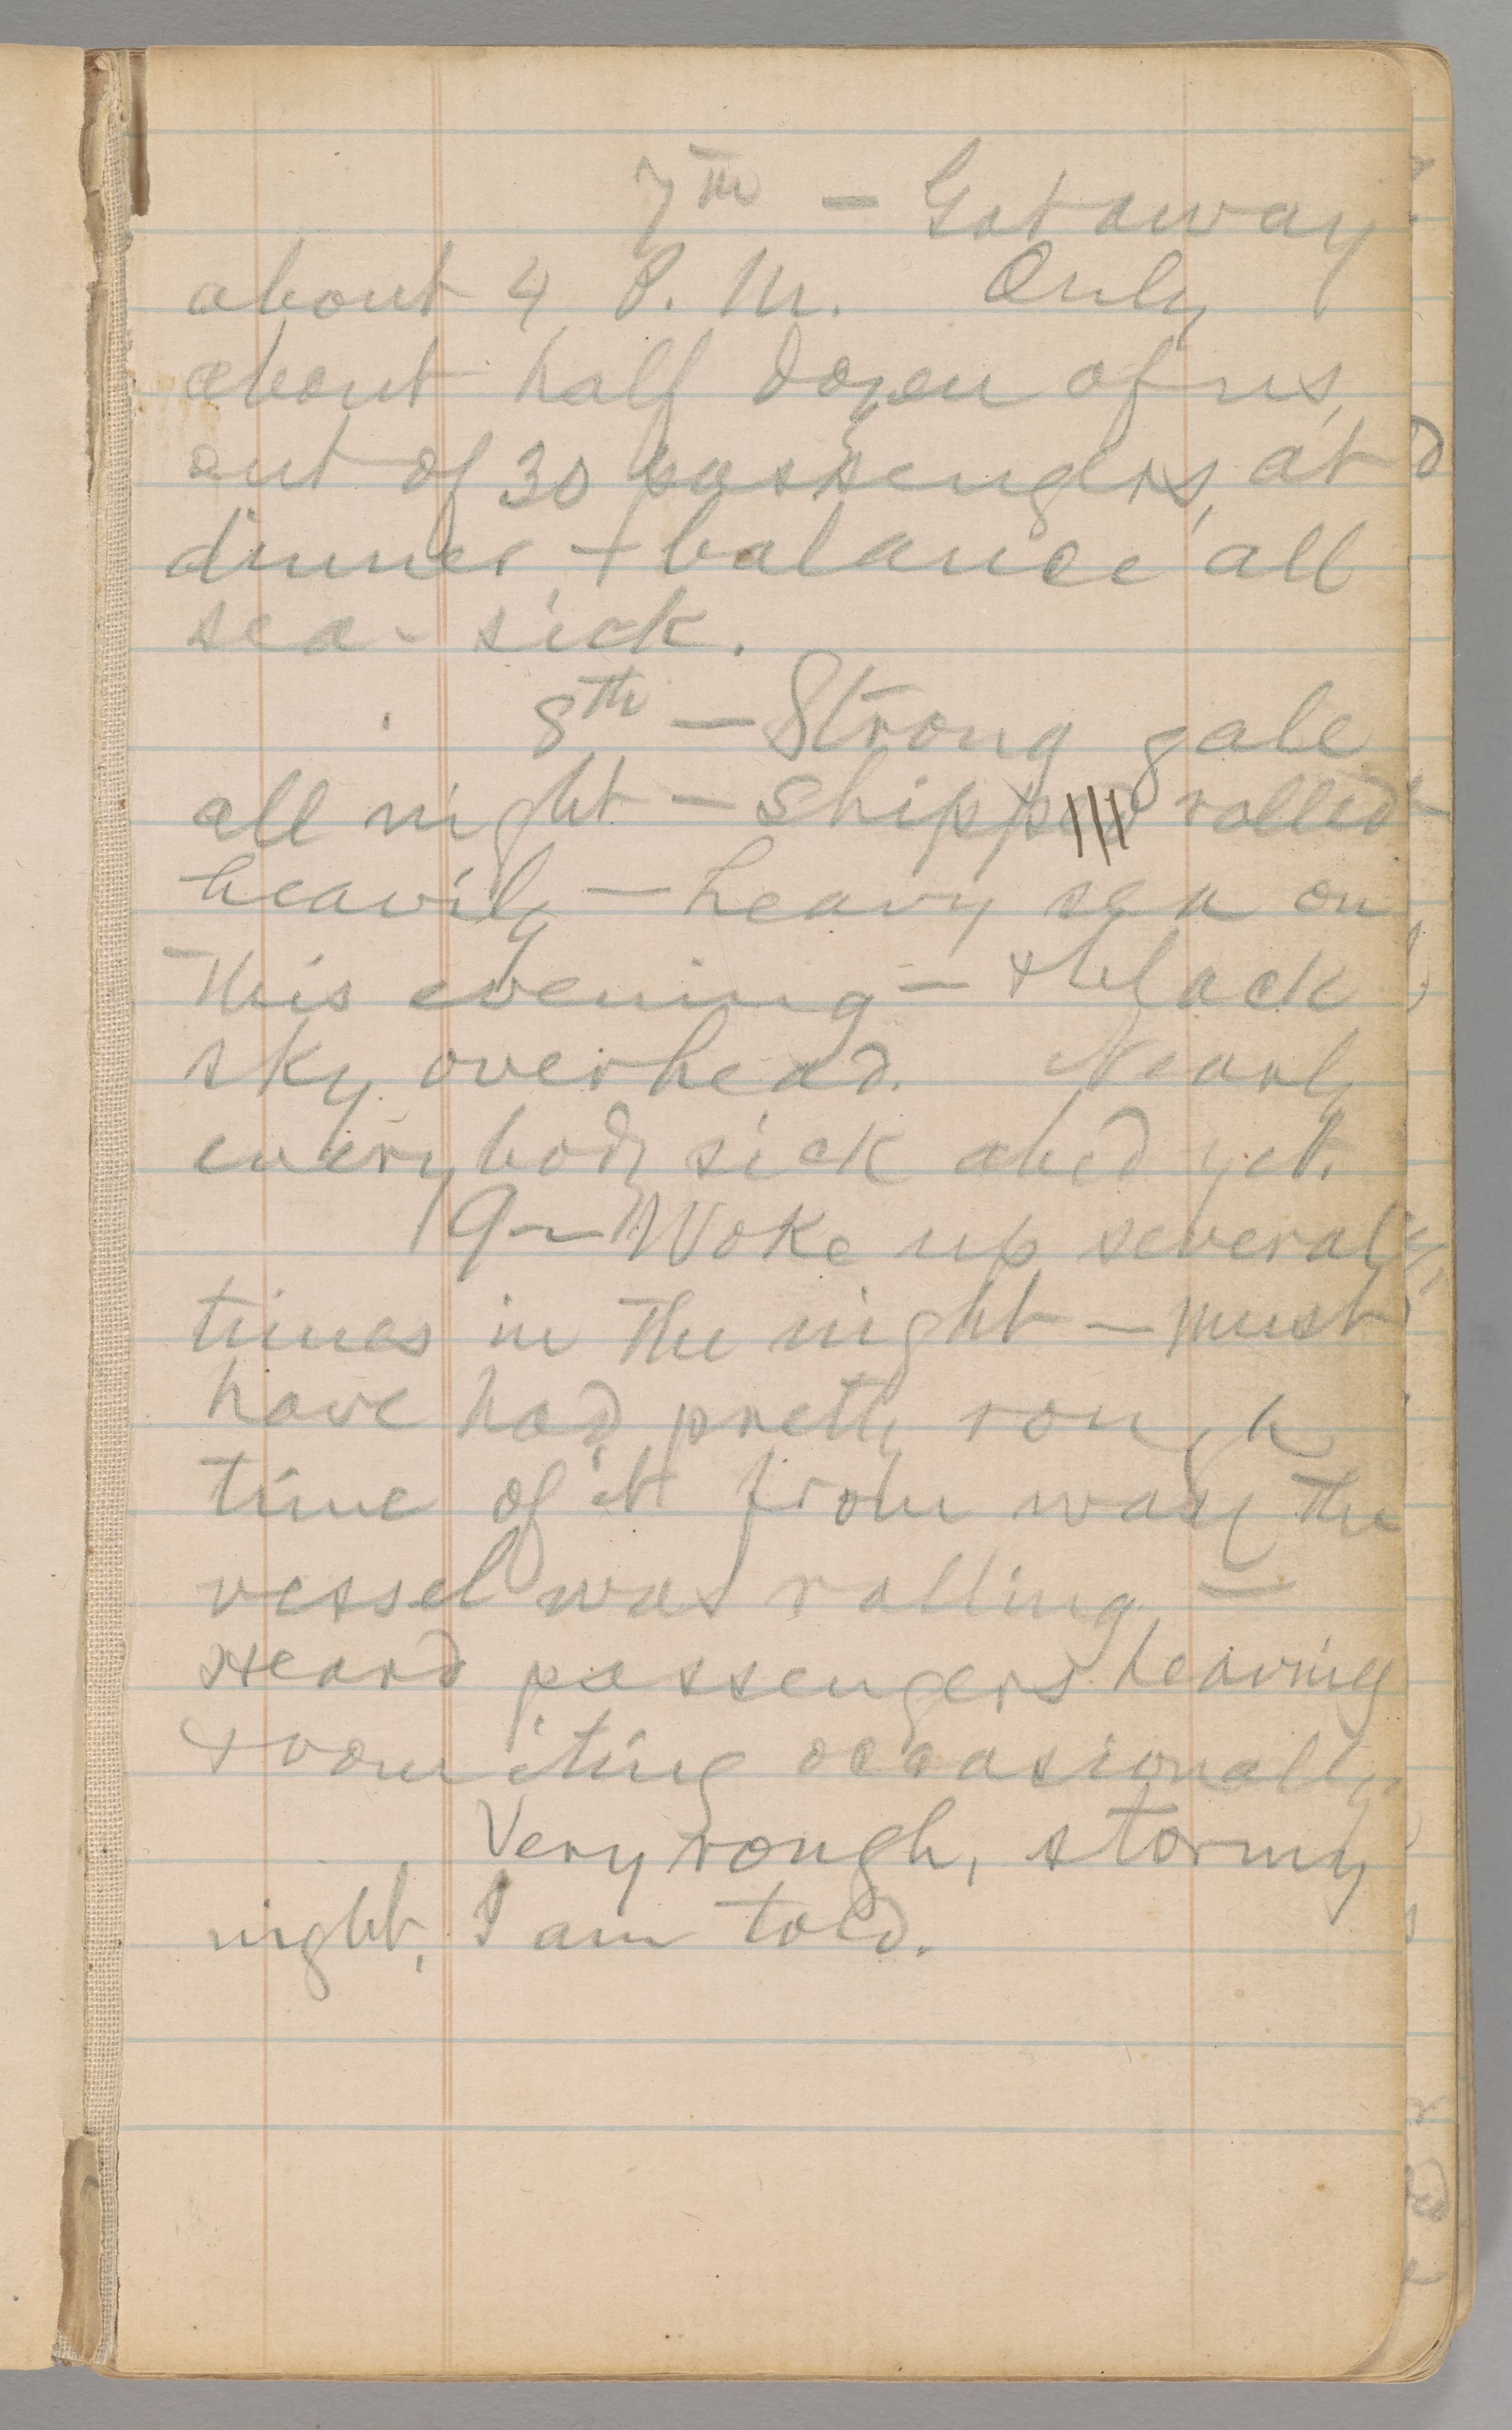 7th — Got away
about 4 P.M. Only
about half dozen of us,
out of 30 passengers, at
dinner & balance all
sea-sick.
8th — Strong gale
all night — shipped rolled
heavily — heavy sea on
this evening — & black
sky overhead. Nearly
everybody sick abed yet.
9 — Woke up several
times in the night — must
have had pretty rough
time of it from way the
vessel was rolling —
Heard passengers heaving
& vomiting occasionally.
Very rough, stormy
night, I am told.